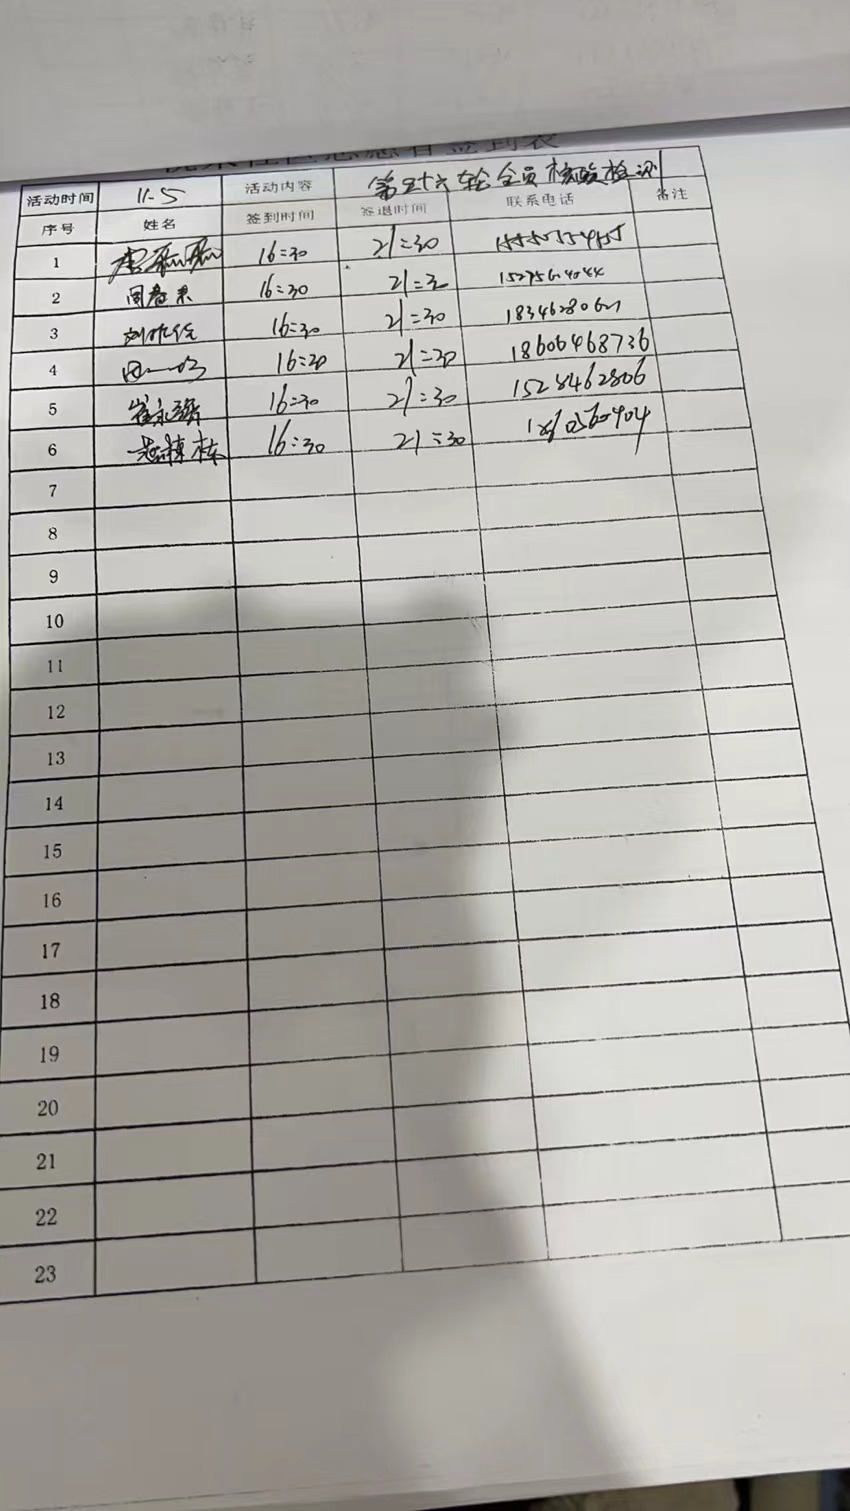 社区志愿者签到表
活动时间 11.5 活动内容 第五十六轮全员核酸检测
序号 姓名 签到时间 签退时间 联系电话 备注
1 16:30 21:30
2 16:30 21:30
3 16:30 21:30
4 16:30 21:30 18606468736
5 崔永强 16:30 21:30 1528462806
6 16:30 21:30
7
8
9
10
11
12
13
14
15
16
17
18
19
20
21
22
23